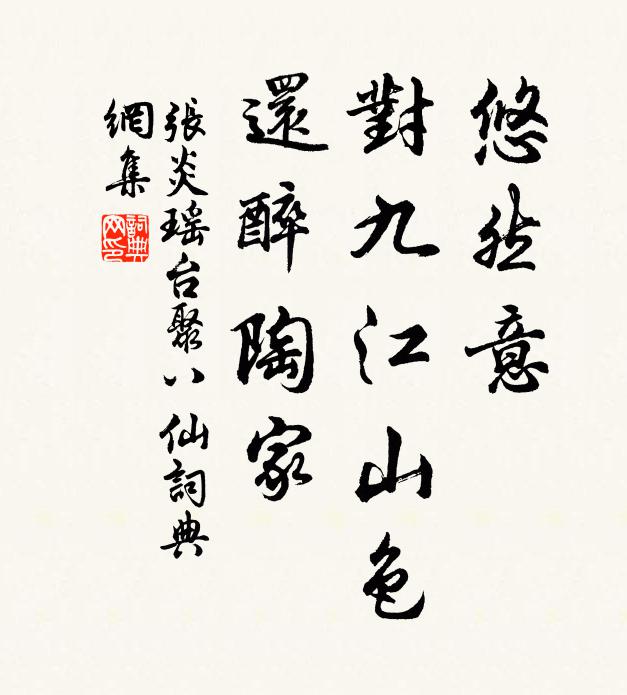 悠然意
對九江山色
還醉陶家
張炎瑶台聚八仙詞典
網集
詞典網印